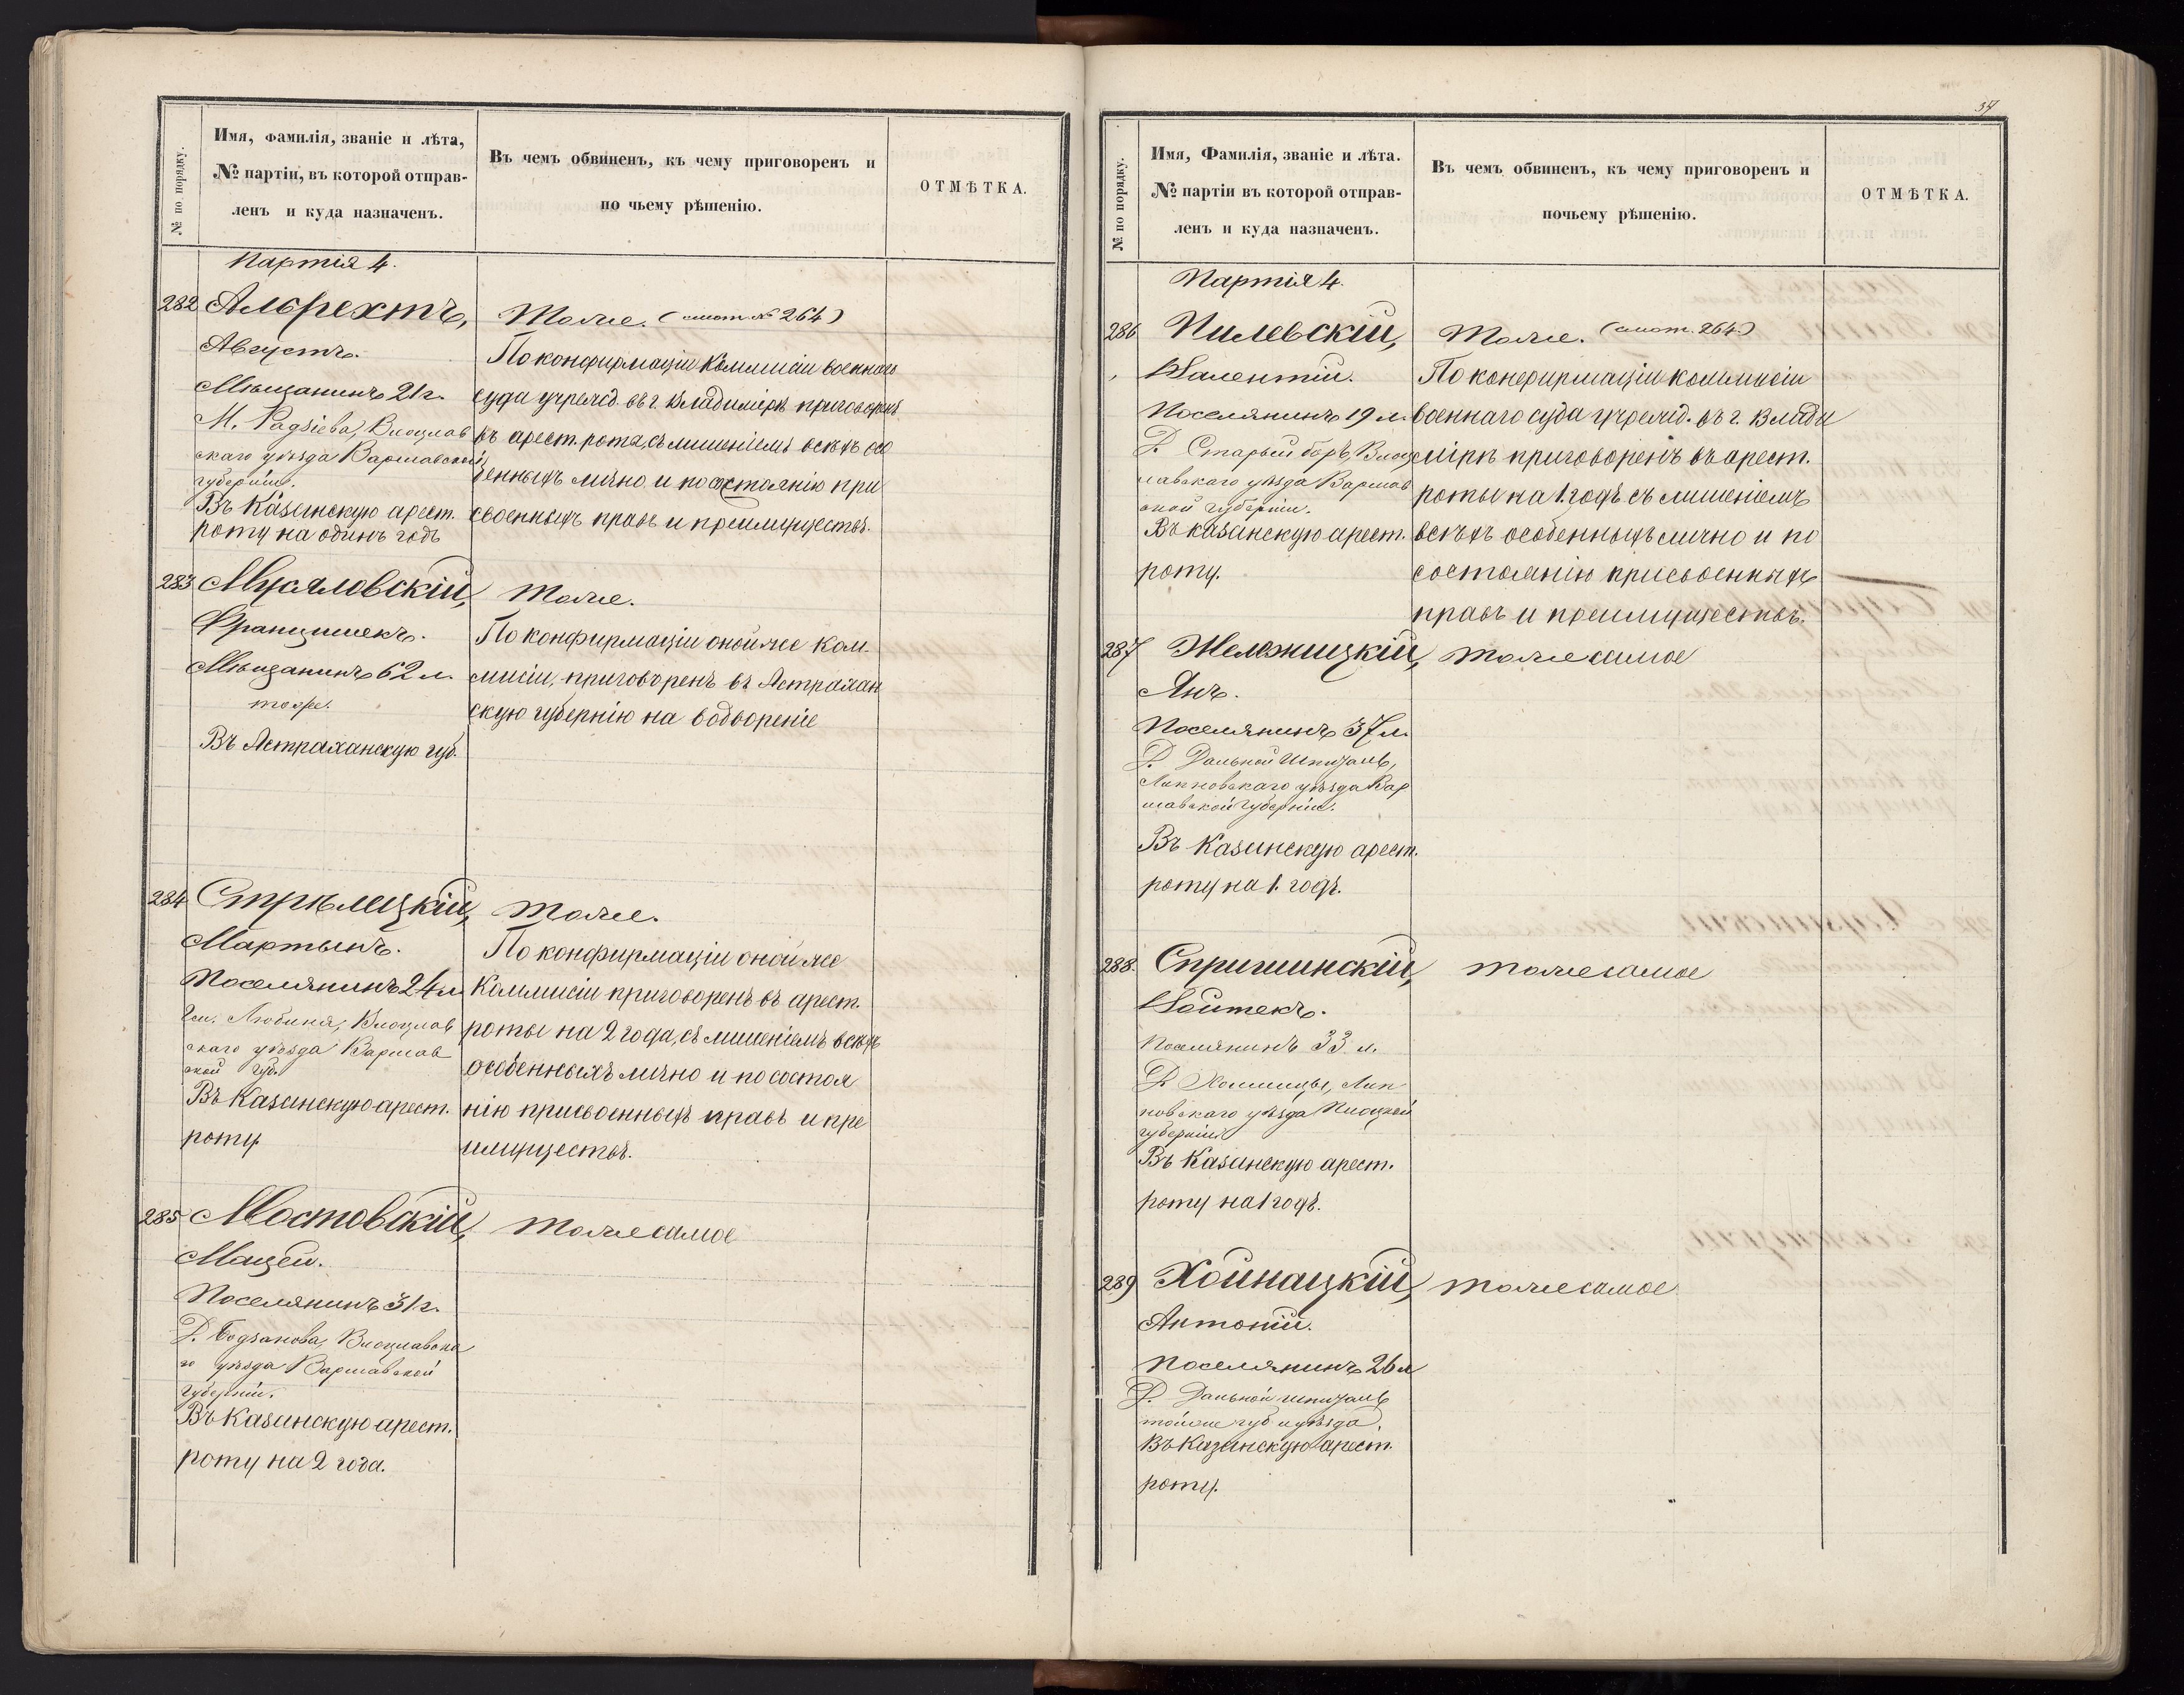 № по порядку.
Имя, фамилія, званіе и лѣта,
№ партіи, въ которой отправ-
ленъ и куда назначенъ.
Въ чемъ обвиненъ, къ чему приговоренъ и
по чьему рѣшенію.
ОТМѢТКА.
Партія 4.
282
Альбрехтъ,
Августъ.
Мѣщанинъ 21 г.
М. Радзіева, Влоцлав
скаго уѣзда Варшавской
губерніи.
Въ Казанскую арест.
роту на одинъ годъ
Тоже. (смот. № 264)
По конфирмаціи Коммисіи военнаго
суда учрежд. въ г. Владимірѣ приговоренъ
въ арест. роты, съ лишеніемъ всѣхъ осо
бенныхъ лично и по состоянію при
своенныхъ правъ и преимуществъ.
283
Мусяловскій,
Францишекъ.
Мѣщанинъ 62 л.
тоже.
Въ Астраханскую губ.
Тоже.
По конфирмаціи оной же ком
мисіи, приговоренъ въ Астрахан
скую губернію на водвореніе
284
Стрѣлецкій,
Мартынъ.
Поселянинъ 24 л
Гм. Любиня, Влоцлав
скаго уѣзда Варшав
ской губ.
Въ Казанскую арест.
роту.
Тоже.
По конфирмаціи оной же
Коммисіи приговоренъ въ арест.
роты на 2 года, съ лишеніемъ всѣхъ
особенныхъ лично и по состоя
нію присвоенныхъ правъ и пре
имуществъ.
285
Мостовскій,
Мацей.
Поселянинъ 31 г.
Д. Бодзанова, Влоцлавска
го уѣзда Варшавской
губерніи.
Въ Казанскую арест.
роту на 2 года.
Тоже самое
34
№ по порядку.
Имя, Фамилія, званіе и лѣта.
№ партіи въ которой отправ-
ленъ и куда назначенъ.
Въ чемъ обвиненъ, къ чему приговоренъ и
почьему рѣшенію.
ОТМѢТКА.
Партія 4.
286
Пилевскій,
Валентій.
Поселянинъ 19 л.
Д. Старый боръ, Влоц
лавскаго уѣзда Варшав
ской губерніи.
Въ Казанскую арест.
роту.
Тоже. (смот. 264.)
По конфирмаціи коммисіи
военнаго суда учрежд. въ г. Влади
мірѣ приговоренъ въ арест.
роты на 1 годъ съ лишеніемъ
всѣхъ особенныхъ лично и по
состоянію присвоенныхъ
правъ и преимуществъ.
287
Желѣжницкій,
Янъ.
Поселянинъ 37 л.
Д. Дальной Шпиталь,
Липновскаго уѣзда Вар
шавской губерніи.
Въ Казанскую арест.
роту на 1. годъ.
тоже самое
288.
Спришинскій,
Войтекъ.
Поселянинъ 33 л.
Д. Лип
новскаго уѣзда Плоцкой
губерніи
Въ Казанскую арест.
роту на 1 годъ.
тоже самое
289
Хойнацкій,
Антоній.
Поселянинъ 26 л
Д. Дальной шпиталь
той же губ. и уѣзда.
Въ Казанскую арест.
роту.
тоже самое